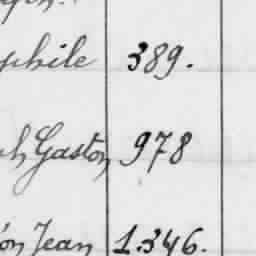 phile 389.
ph Gaston 978
on Jean 1.346.